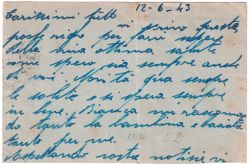 12-6-43
Carissimi tutti
vi scrivo queste
poche righe per farvi sapere
della mia ottima salute
così spero già sempre anche
di voi. Novità qua sempre
le solite si spera sempre
in bene. Bianca mi raccomando
tanto la bambina e baciala
tanto per me.
Aspettando vostre notizie vi